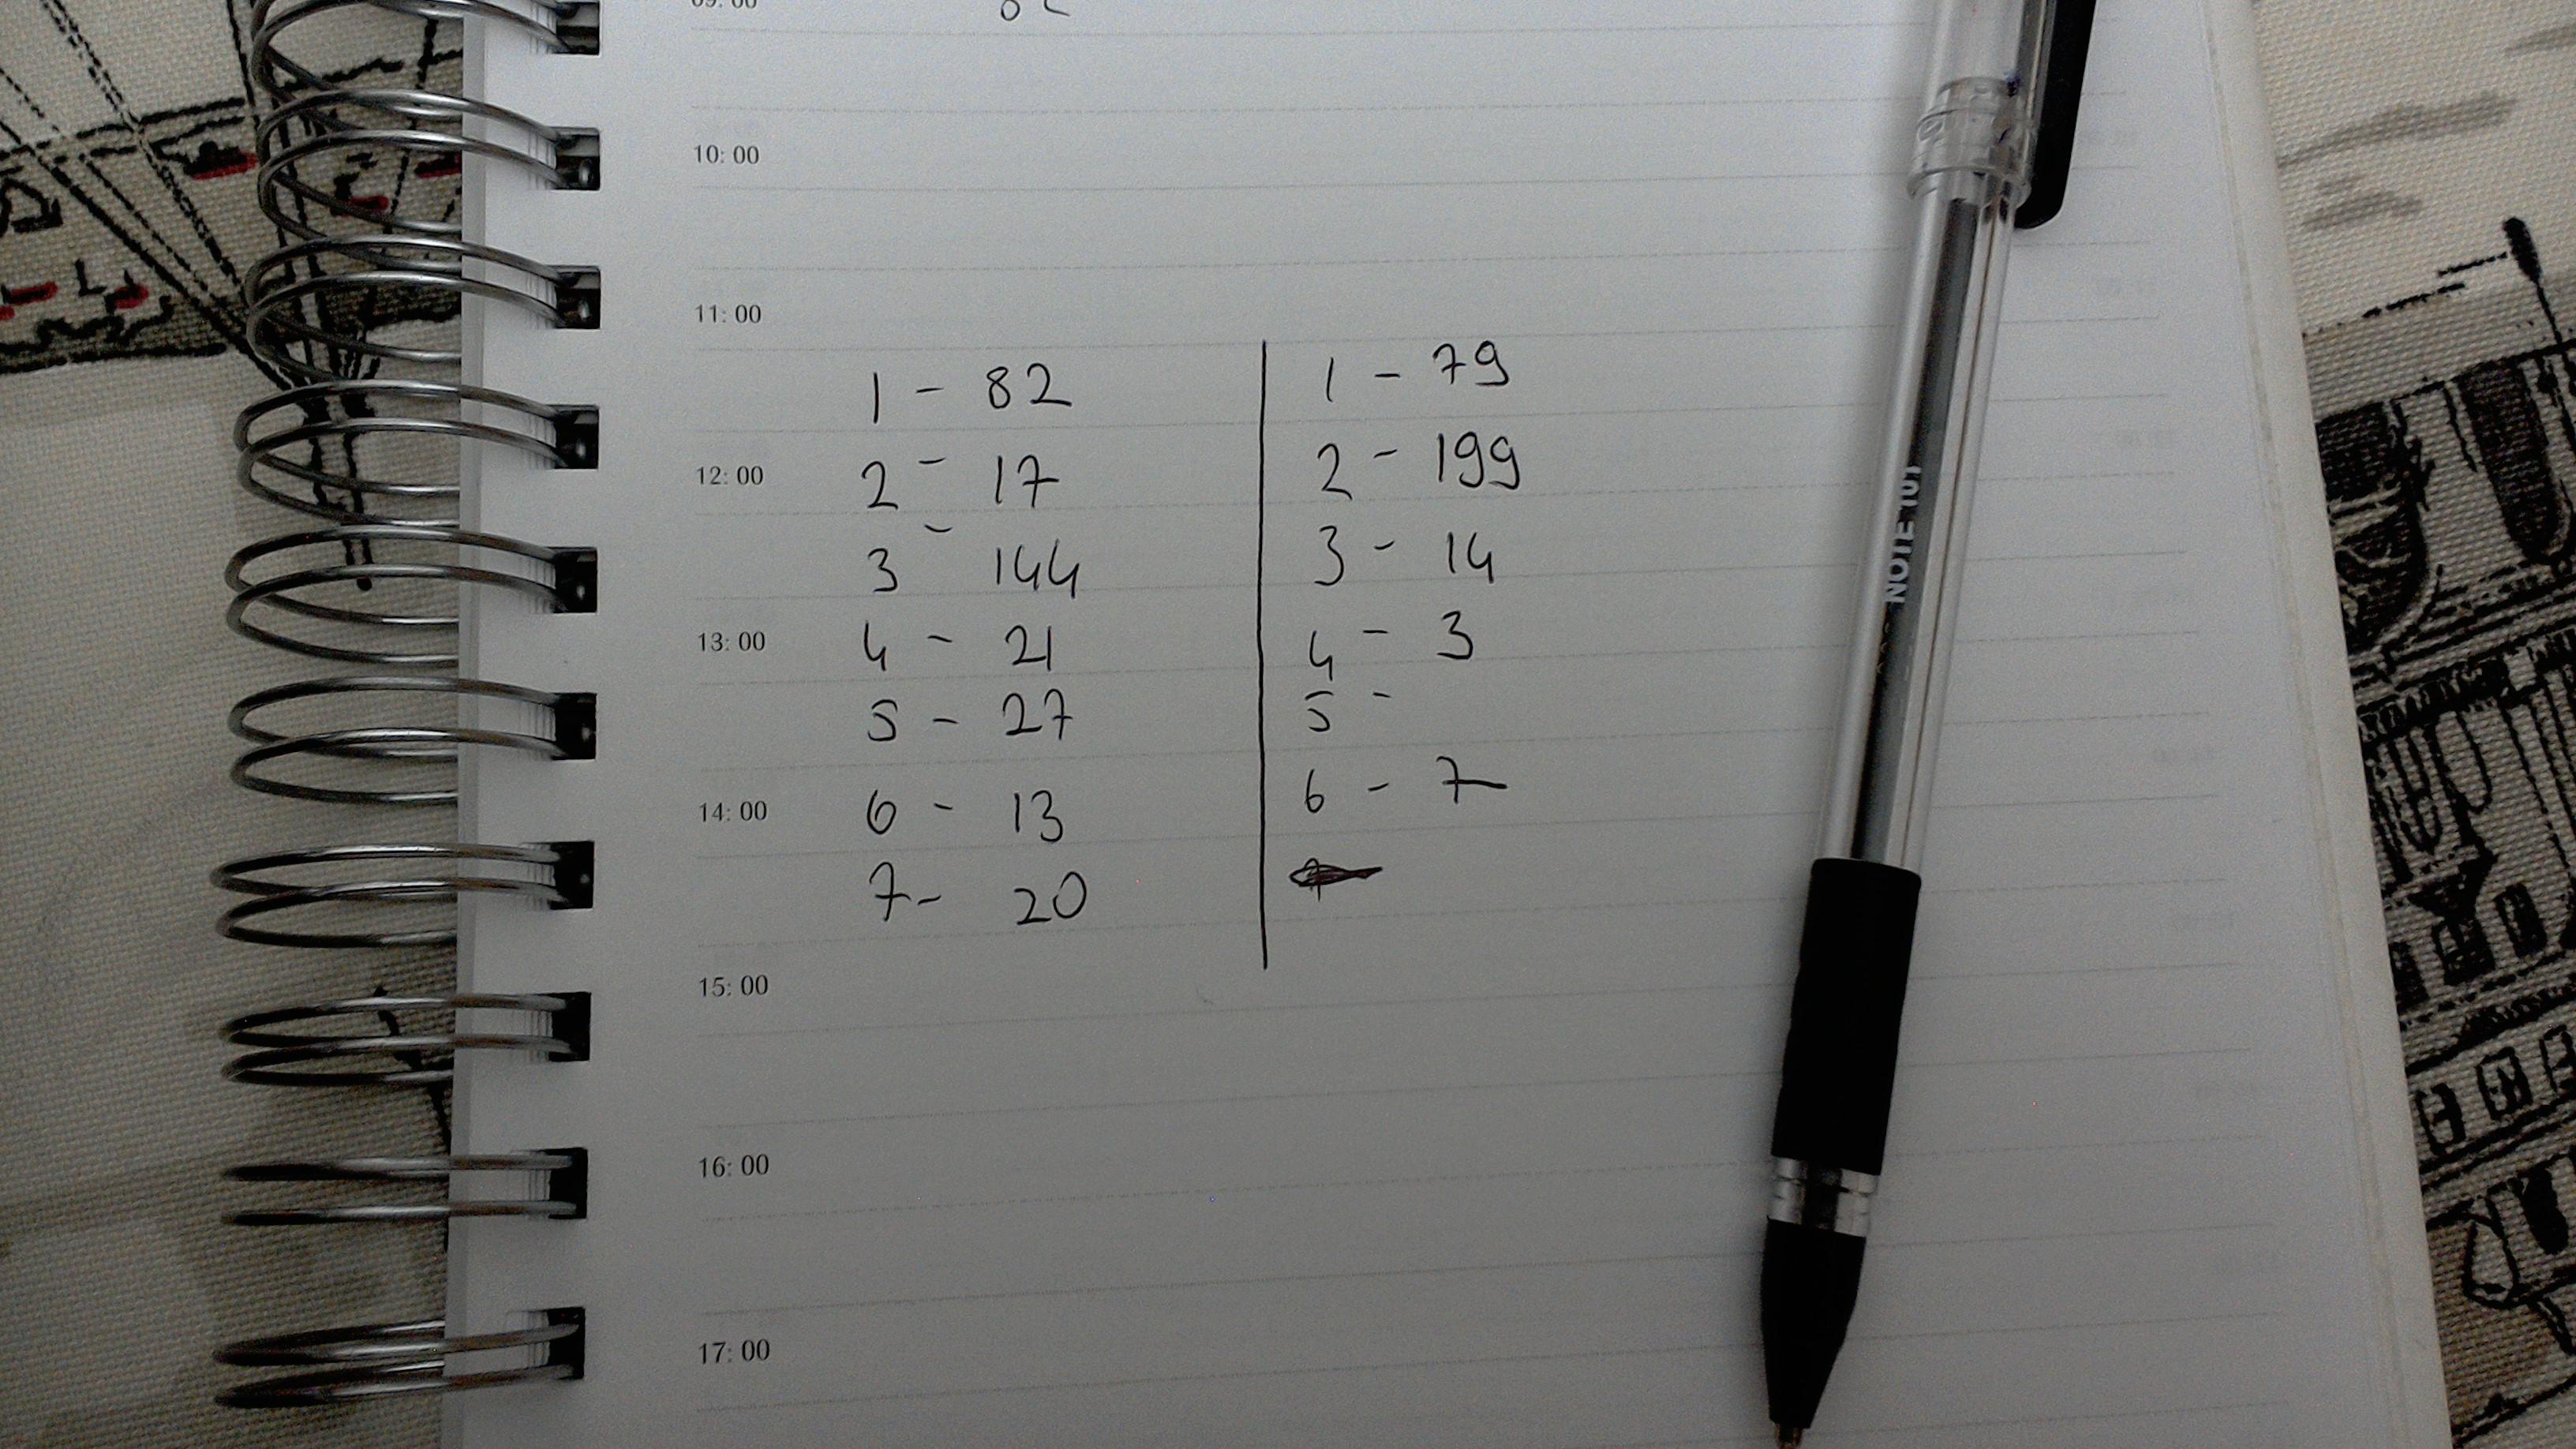 09:00
10:00
11:00
1 - 82
2 - 17
12:00
3 - 144
4 - 21
13:00
5 - 27
6 - 13
14:00
7 - 20
1 - 79
2 - 199
3 - 14
4 - 3
5 -
6 - 7
15:00
16:00
17:00
NOTE 101